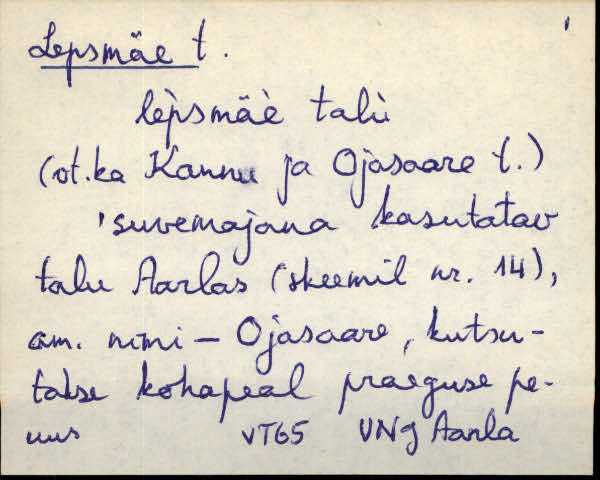 Lepsmäe t.
lèpsmäè talù
(vt.ka Kannu ja Ojasaare t.)
'suvemajana kasutatav
talu Aarlas (skeemil nr. 14),
am. nimi – Ojasaare, kutsu-
takse kohapeal praeguse pe-
VT65 VNg Aarla